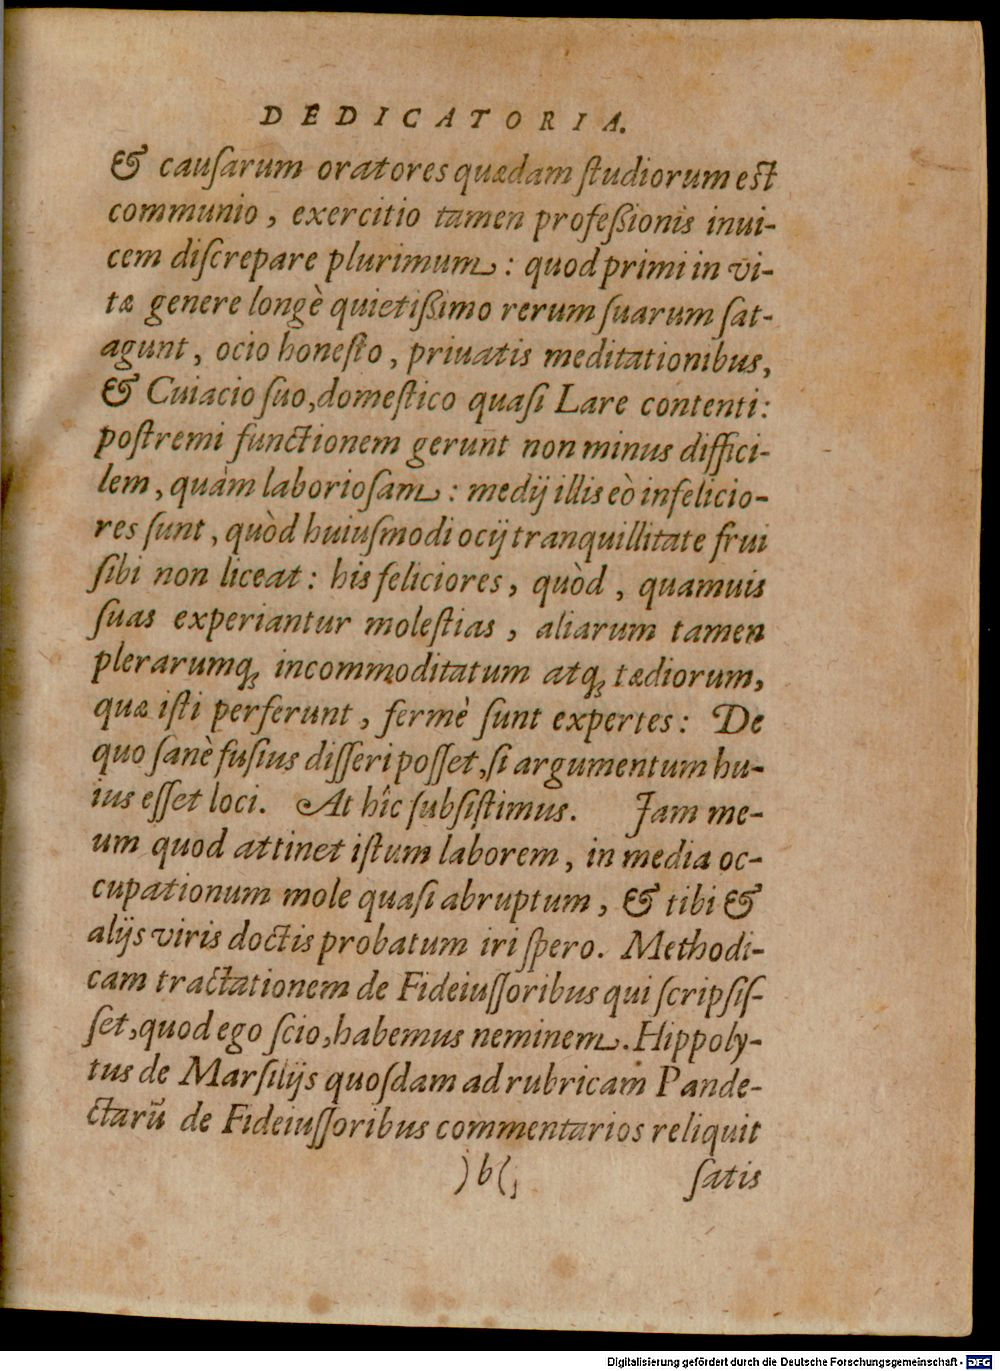 DEDICATORIA.
& cauſarum oratores quædam ſtudiorum eſt
communio, exercitio tamen profeßionis inui-
cem diſcrepare plurimum: quod primi in vi-
tæ genere longè quietißimo rerum ſuarum ſat-
agunt, ocio honeſto, priuatis meditationibus,
& Cuiacio ſuo, domeſtico quaſi Lare contenti:
poſtremi functionem gerunt non minus diffici-
lem, quàm laborioſam: medij illis eò infelicio-
res ſunt, quòd huiuſmodi ocij tranquillitate frui
ſibi non liceat: his feliciores, quòd, quamuis
ſuas experiantur moleſtias, aliarum tamen
plerarumq; incommoditatum atq; tædiorum,
quæ iſti perferunt, fermè ſunt expertes: De
quo ſanè fuſius diſſeri poſſet, ſi argumentum hu-
ius eſſet loci. At hîc ſubſiſtimus. Jam me-
um quod attinet iſtum laborem, in media oc-
cupationum mole quaſi abruptum, & tibi &
alijs viris doctis probatum iri ſpero. Methodi-
cam tractationem de Fideiuſſoribus qui ſcripſiſ-
ſet, quod ego ſcio, habemus neminem. Hippoly-
tus de Marſilijs quoſdam ad rubricam Pande-
ctarū de Fideiuſſoribus commentarios reliquit
)b( ſatis
Digitalisierung gefördert durch die Deutsche Forschungsgemeinschaft - DFG